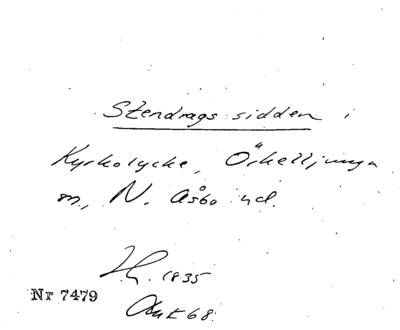 Stendrags sidden i
Kyrkolycke, Örkelljunga
sn, N. Åsbo hd.
1835
Nr 7479
Aukt 68.